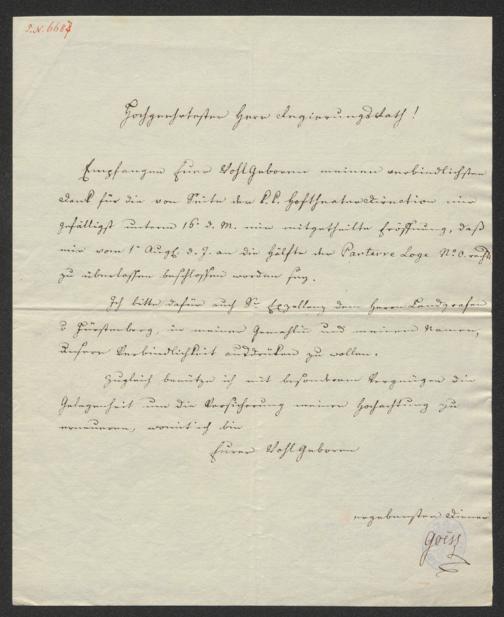 I.N. 6687
Hochgeehrtester Herr Regierungsrath!
Empfangen Euer Wohlgeboren meinen verbindlichsten
Dank für die von Seite der k.k. Hoftheater Direction mir
gefälligst unterm 16 d. M. mir mitgetheilte Eröffnung, daß
mir vom 1 Aug d. J. an die Hälfte der Parterre Loge No 0. rechts
zu überlassen beschlossen worden sey.
Ich bitte dafür auch Sr Exzellenz dem Herrn Landgrafen
v Fürstenberg, in meiner Gemahlin und meinem Namen,
unsere Verbindlichkeit ausdrüken zu wollen.
Zugleich benütze ich mit besonderem Vergnügen die
Gelegenheit um die Versicherung meiner Hochachtung zu
erneueren, womit ich bin
Euer Wohlgeboren
ergebenster Diener
Goëss